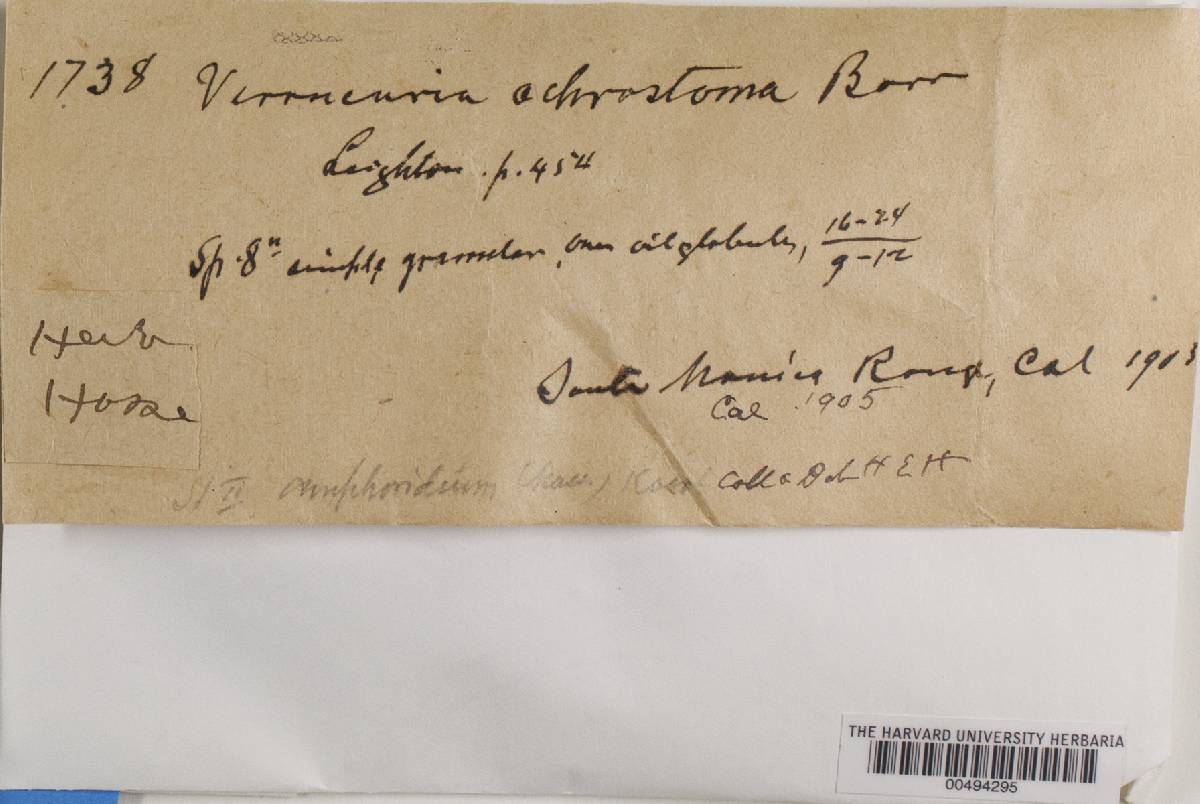 1738 Verrucaria ochrostoma Borr
Leighton. p. 454
Sp. 8n simple, granular, oil globules, 16-24
9-12
Herb
Hasse
Santa Monica Range, Cal 1903
Cal 1905
amphoridium Coll & Det H E H
THE HARVARD UNIVERSITY HERBARIA
00494295